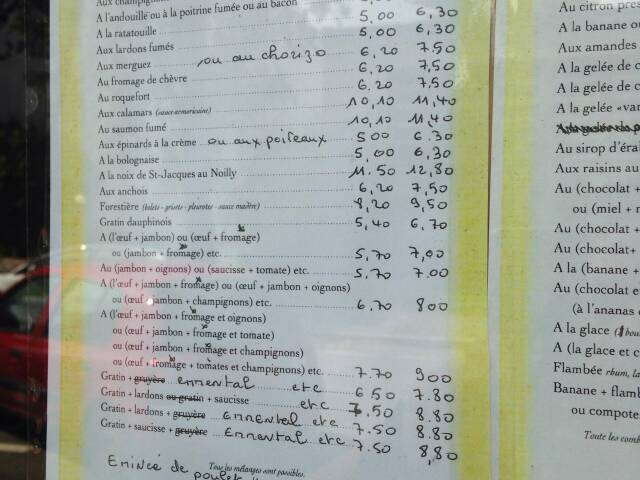 Aux champignons
A l'andouille ou à la poitrine fumée ou au bacon 5,00 6,30
A la ratatouille 5,00 6,30
Aux lardons fumés 6,20 7,50
Aux merguez ou au chorizo 6,20 7,50
Au fromage de chèvre 6,20 7,50
Au roquefort 10,10 11,40
Aux calamars (sauce armoricaine) 10,10 11,40
Au saumon fumé 5 00 6.30
Aux épinards à la crème ou aux poireaux 5,00 6,30
A la bolognaise 11.50 12,80
A la noix de St-Jacques au Noilly 6,20 7,50
Aux anchois 8,20 9,50
Forestière (bolets - griset - pleurotes - sauce madère) 5,40 6,70
Gratin dauphinois
A (l'œuf + jambon) ou (œuf + fromage)
ou (jambon + fromage) etc. 5,70 7,00
Au (jambon + oignons) ou (saucisse + tomate) etc. 5,70 7.00
A (l'œuf + jambon + fromage) ou (œuf + jambon + oignons)
ou (œuf + jambon + champignons) etc. 6,70 8 00
A (l'œuf + jambon + fromage et oignons)
ou (œuf + jambon + fromage et tomate)
ou (œuf + jambon + fromage et champignons)
ou (œuf + fromage + tomates et champignons) etc. 7.70 9 00
Gratin + gruyère emmental etc 6 50 7.80
Gratin + lardons ou gratin + saucisse etc 7.50 8.80
Gratin + lardons + gruyère Emmental etc 7.50 8.80
Gratin + saucisse + gruyère Emmental etc 7.50 8,80
Emincé de poulet
Tous les mélanges sont possibles.
Au citron pres
A la banane ou
Aux amandes
A la gelée de c
A la gelée de c
A la gelée «var
Au sirop d'éra
Aux raisins au
Au (chocolat
ou (miel + n
Au (chocolat +
Au (chocolat+
A la (banane +
Au (chocolat e
(à l'ananas
A la glace (1 bou
A (la glace et c
Flambée rhum, la
Banane + flamb
ou compote
Toute les comb